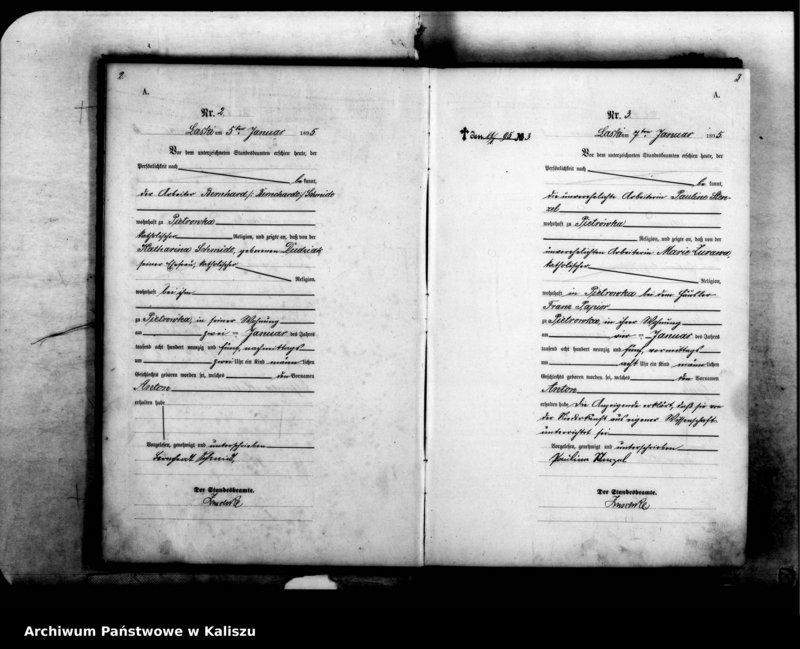 2
A.
Nr. 2.
Laski am 5ten Januar 1895
Vor dem unterzeichneten Standesbeamten erschien heute, der
Persönlichkeit nach
be kannt,
der Arbeiter Bernhard Schmidt
wohnhaft zu Pietrowka
katholischer Religion, und zeigte an, daß von der
Katharina Schmidt, geborenen Dudziak
seiner Ehefrau, katholischer
Religion,
wohnhaft bei ihm
zu Pietrowka, in seiner Wohnung
am zwei ten Januar des Jahres
tausend acht hundert neunzig und fünf, nachmittags
um zwei Uhr ein Kind männ lichen
Geschlechts geboren worden sei, welches den Vornamen
Anton
erhalten habe
Vorgelesen, genehmigt und unterschrieben
Bernhard Schmidt
Der Standesbeamte.
3
A.
Nr. 3.
Laski am 7ten Januar 1895.
Vor dem unterzeichneten Standesbeamten erschien heute, der
Persönlichkeit nach
be kannt,
die unverehelichte Arbeiterin Pauline Sten-
zel
wohnhaft zu Pietrowka
Religion, und zeigte an, daß von der
unverehelichten Arbeiterin Marie Zurawa,
katholischer
Religion,
wohnhaft in Pietrowka bei dem Häusler
Franz
zu Pietrowka, in ihrer Wohnung
am vier ten Januar des Jahres
tausend acht hundert neunzig und fünf, vormittags
um acht Uhr ein Kind männ lichen
Geschlechts geboren worden sei, welches den Vornamen
Anton
erhalten habe. Die Anzeigende erklärt, daß sie von
der Niederkunft aus eigener Wissenschaft
unterrichtet sei
Vorgelesen, genehmigt und unterschrieben
Pauline Stenzel
Der Standesbeamte.
Archiwum Państwowe w Kaliszu